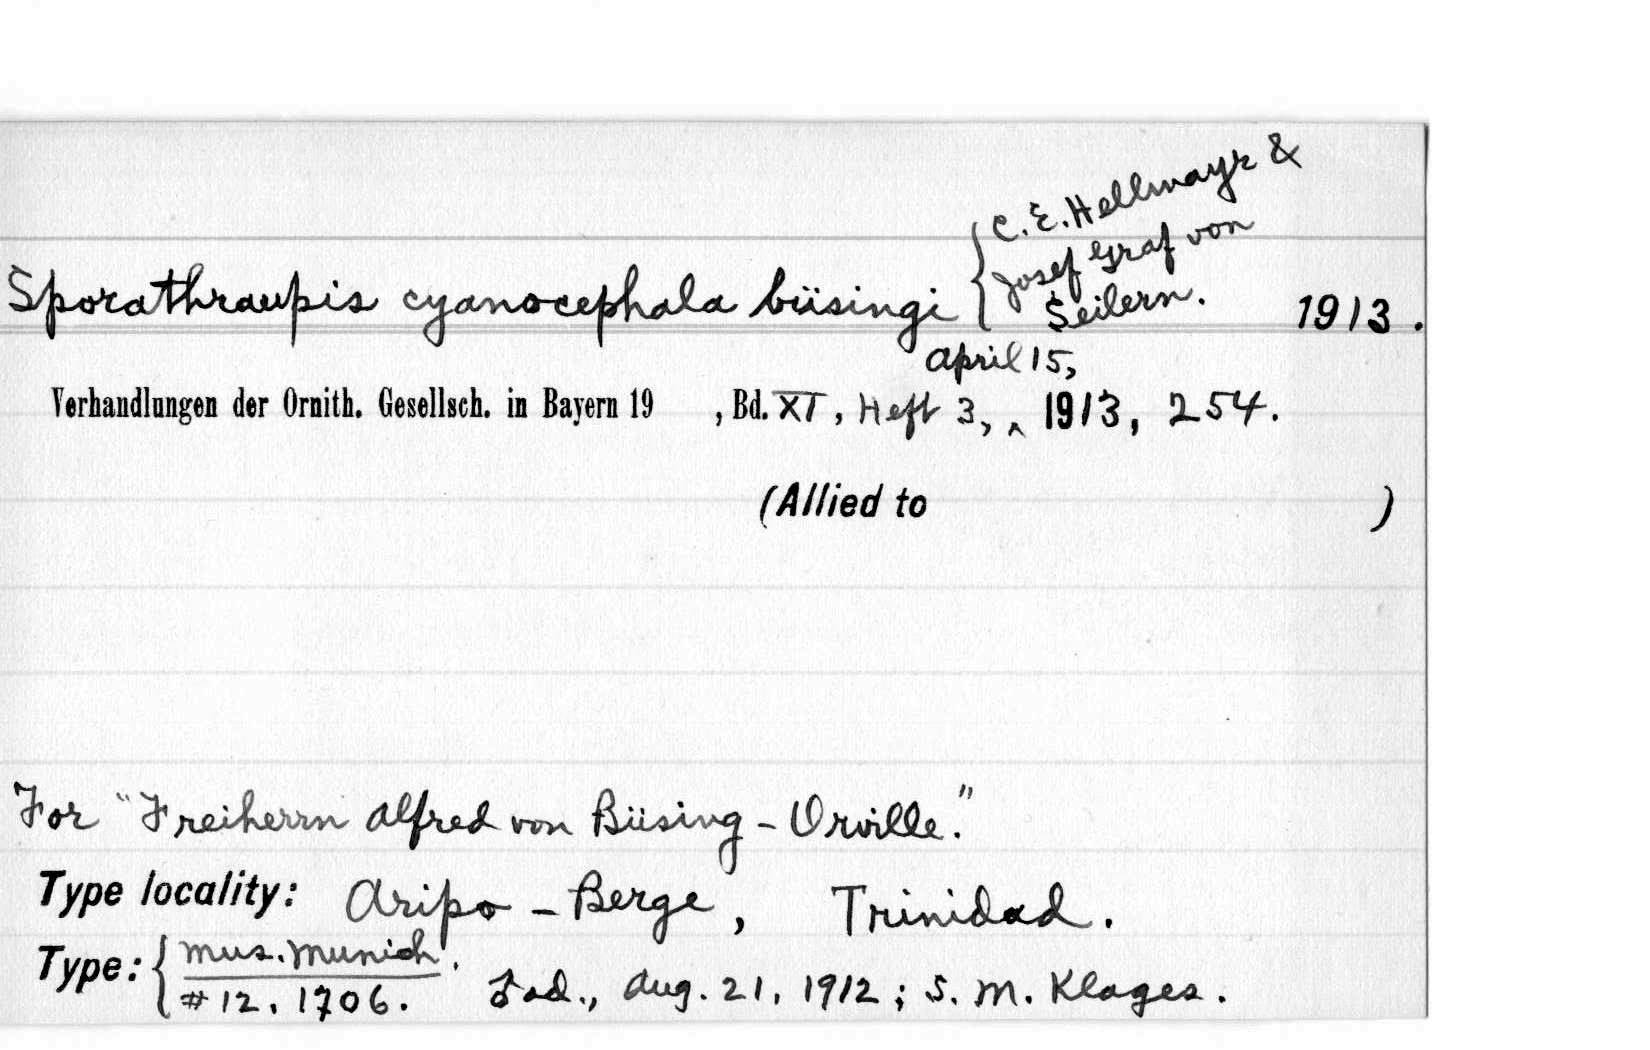 C. E. Hellmayr &
Josef Graf von
Seilern.
Sporathraupis cyanocephala büsingi { 1913.
April 15,
Verhandlungen der Ornith. Gesellsch. in Bayern 19 , Bd. XI, Heft 3, ^ 1913, 254.
(Allied to )
For "Freiherrn Alfred von Büsing-Orville."
Type locality: Aripo-Berge, Trinidad.
Type: { Mus. Munich.
#12.1706. ♂ ad., Aug. 21, 1912; S. M. Klages.